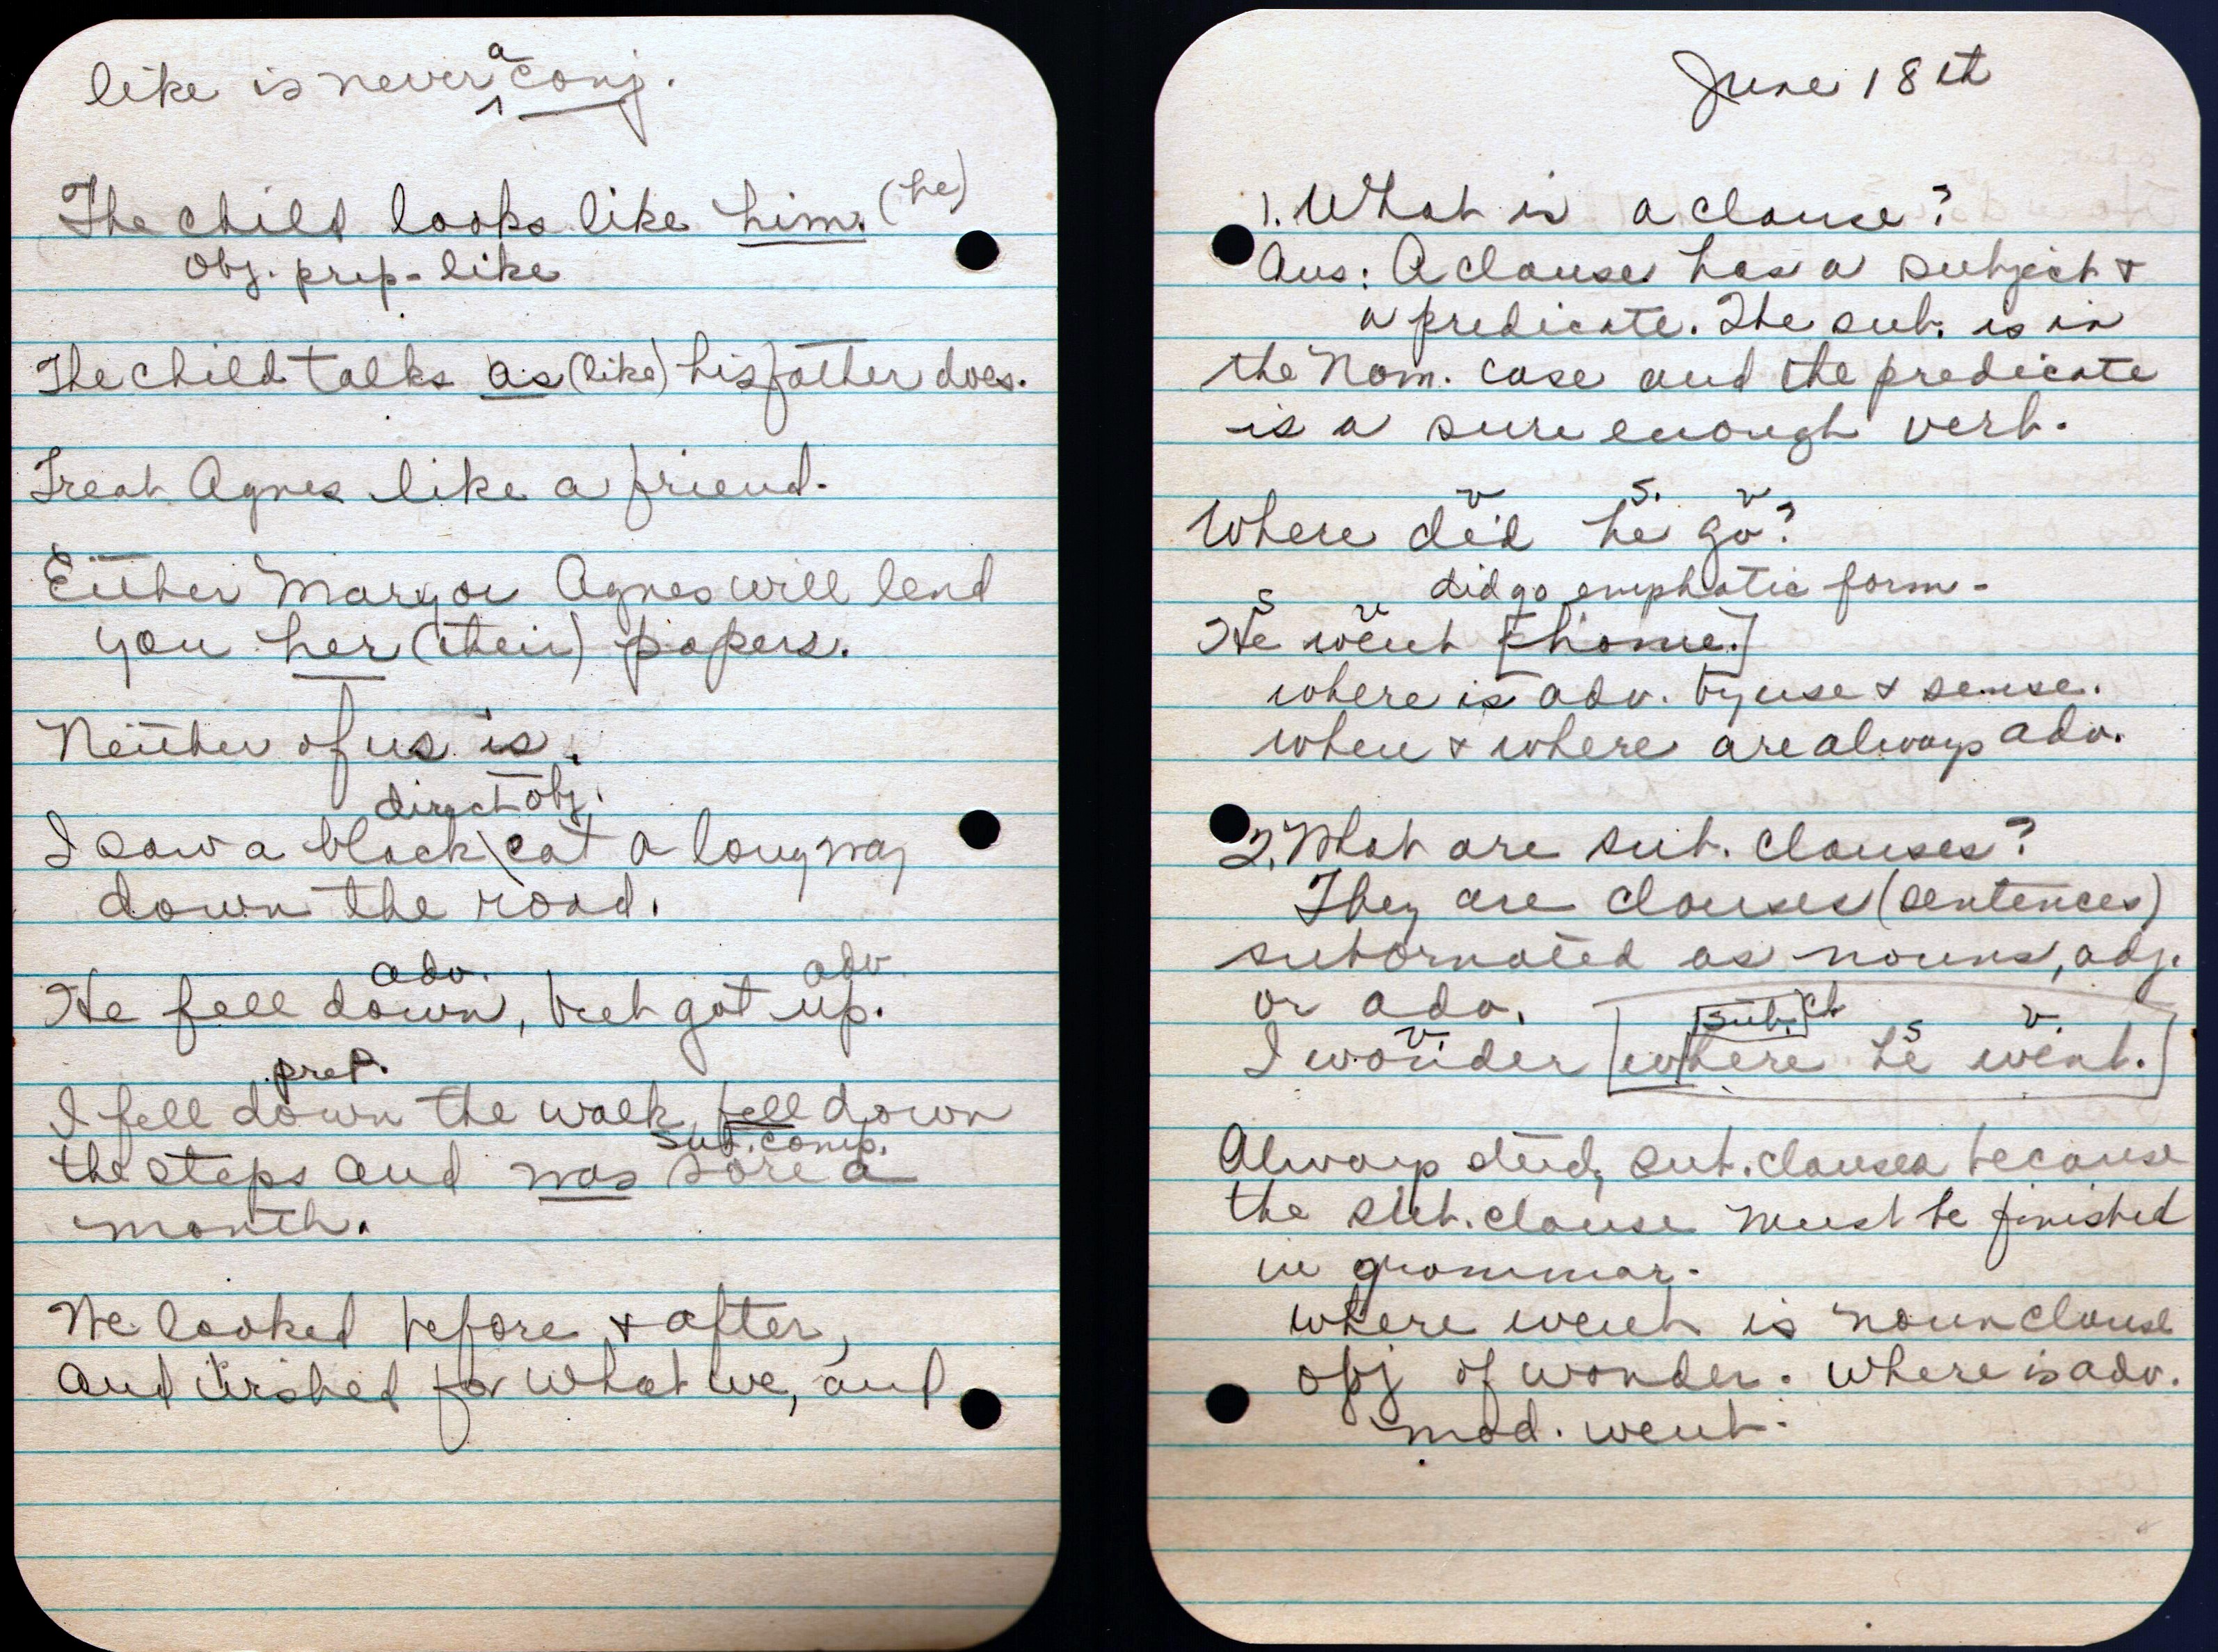 a
like is never ^ conj.
The child looks like him. (he)
obj. prep - like
The child talks as (like) his father does.
Treat Agnes like a friend.
Either Mary or Agnes will lend
you her (their) papers.
Neither of us is.
direct obj.
I saw a black \ cat a long way
down the road.
adv. adv
He fell down, but got up.
prep.
I fell down the walk, fell down
sub. comp.
the steps and was sore a
month.
We looked before & after,
and wished for what we, and
June 18th
1. What is a clause?
Ans: A clause has a subject &
a predicate. The sub. is in
the Nom. case and the predicate
is a sure enough verb.
v s. v
Where did he go?
did go emphatic form -
s v
He went [home.]
where is adv. by use & sense.
when & where are always adv.
2. What are sub. clauses?
They are clauses (sentences)
subornated as nouns, adj.
or adv.
v. sub. cl s v.
I wonder [where he went.]
Always study sub. clauses because
the sub. clause must be finished
in grammar.
where went is noun clause
obj of wonder. where is adv.
mod. went.